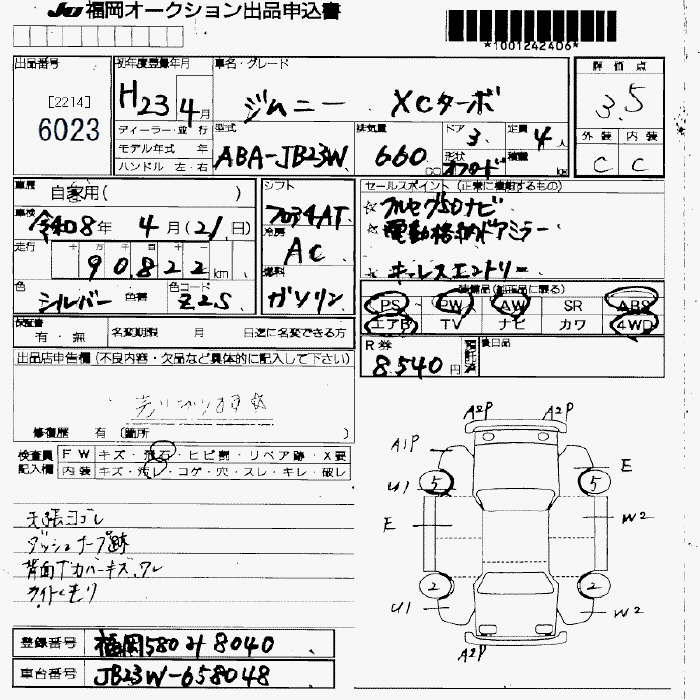 JU 福岡オークション出品申込書
*1001242406*
出品番号
[2214]
6023
初年度登録年月
H23 4月
車名・グレード
ジムニー XCターボ
評価点
3.5
ディーラー・並行
モデル年式 年
ハンドル 左・右
型式
ABA-JB23W
排気量
660 CC
ドア
3
形状
オフロード
定員
4人
積載
外装 内装
C C
車歴
自家用( )
車検
令和08年 4月(21日)
走行
十万千百十
90822km
色
シルバー 色替
色コード
Z2S
シフト
7034AT
冷房
AC
燃料
ガソリン
セールスポイント(正常に機動するもの)
☆フルセグSDナビ
☆電動格納ドアミラー
☆キーレスエントリー
装備品(純正品に限る)
PS PW AW SR ABS
エアB TV ナビ カワ 4WD
保証書
有・無
名変期限 月 日迄に名変できる方
R券
8540円
預託済
後日品
出品店申告欄(不良内容・欠品など具体的に記入して下さい)
修復歴 有 (箇所 )
検査員記入欄
FW キズ・飛石・ヒビ割・リペア跡・X要
内装 キズ・汚レ・コゲ・穴・スレ・キレ・破レ
天張ヨゴレ
ダッシュテープ跡
背面Tカバーキズ、ワレ
ライトくもり
A2P A2P
A1P
E
U1 5 5
E W2
2 2
U1 W2
A2P
登録番号 福岡580ぬ8040
車台番号 JB23W-658048